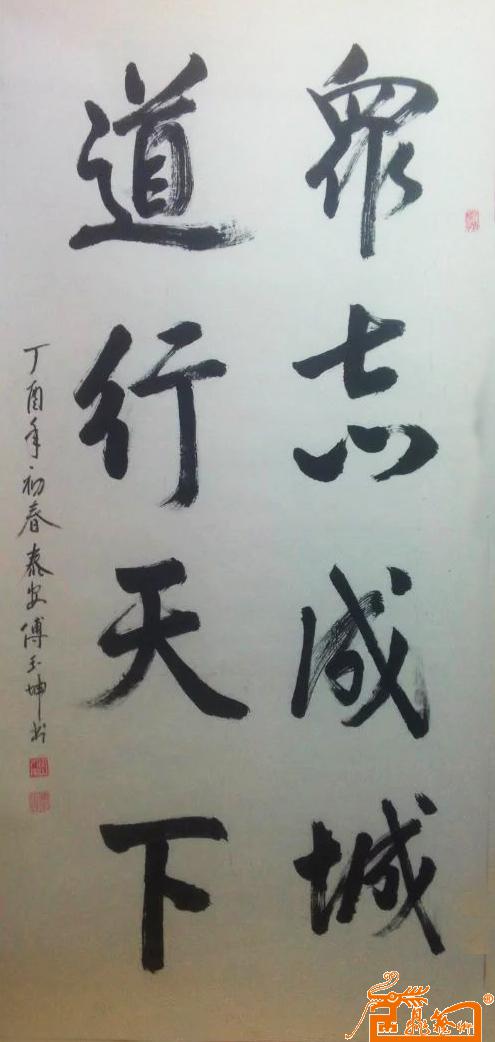 眾志成城
道行天下
丁酉年初春泰安傅玉坤书